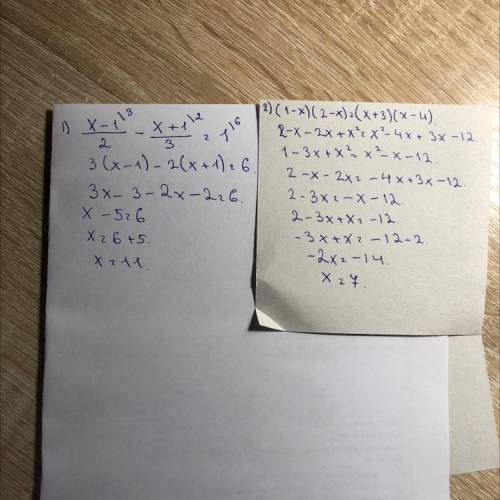 1) (x-1)/2 \3 - (x+1)/3 \2 = 1 \6
3(x-1)-2(x+1)=6.
3x-3-2x-2=6.
x-5=6
x=6+5.
x=11.
2) (1-x)(2-x)=(x+3)(x-4)
2-x-2x+x²=x²-4x+3x-12
1-3x+x²=x²-x-12.
2-x-2x=-4x+3x-12.
2-3x=-x-12.
2-3x+x=-12.
-3x+x=-12-2
-2x=-14.
x=7.